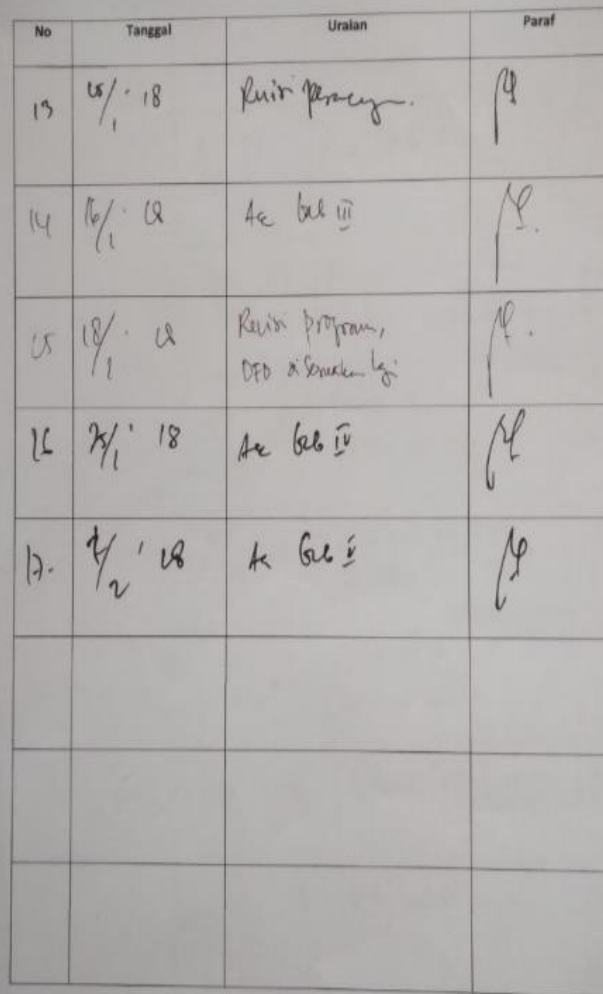 No Tanggal Uraian Paraf
13 15/1 '18 Revisi
14 16/1 '18 Acc Bab III
15 18/1 '18 Revisi program,
DFD di lagi
16 25/1 '18 Acc Bab IV
17. /2 '18 Acc Bab V